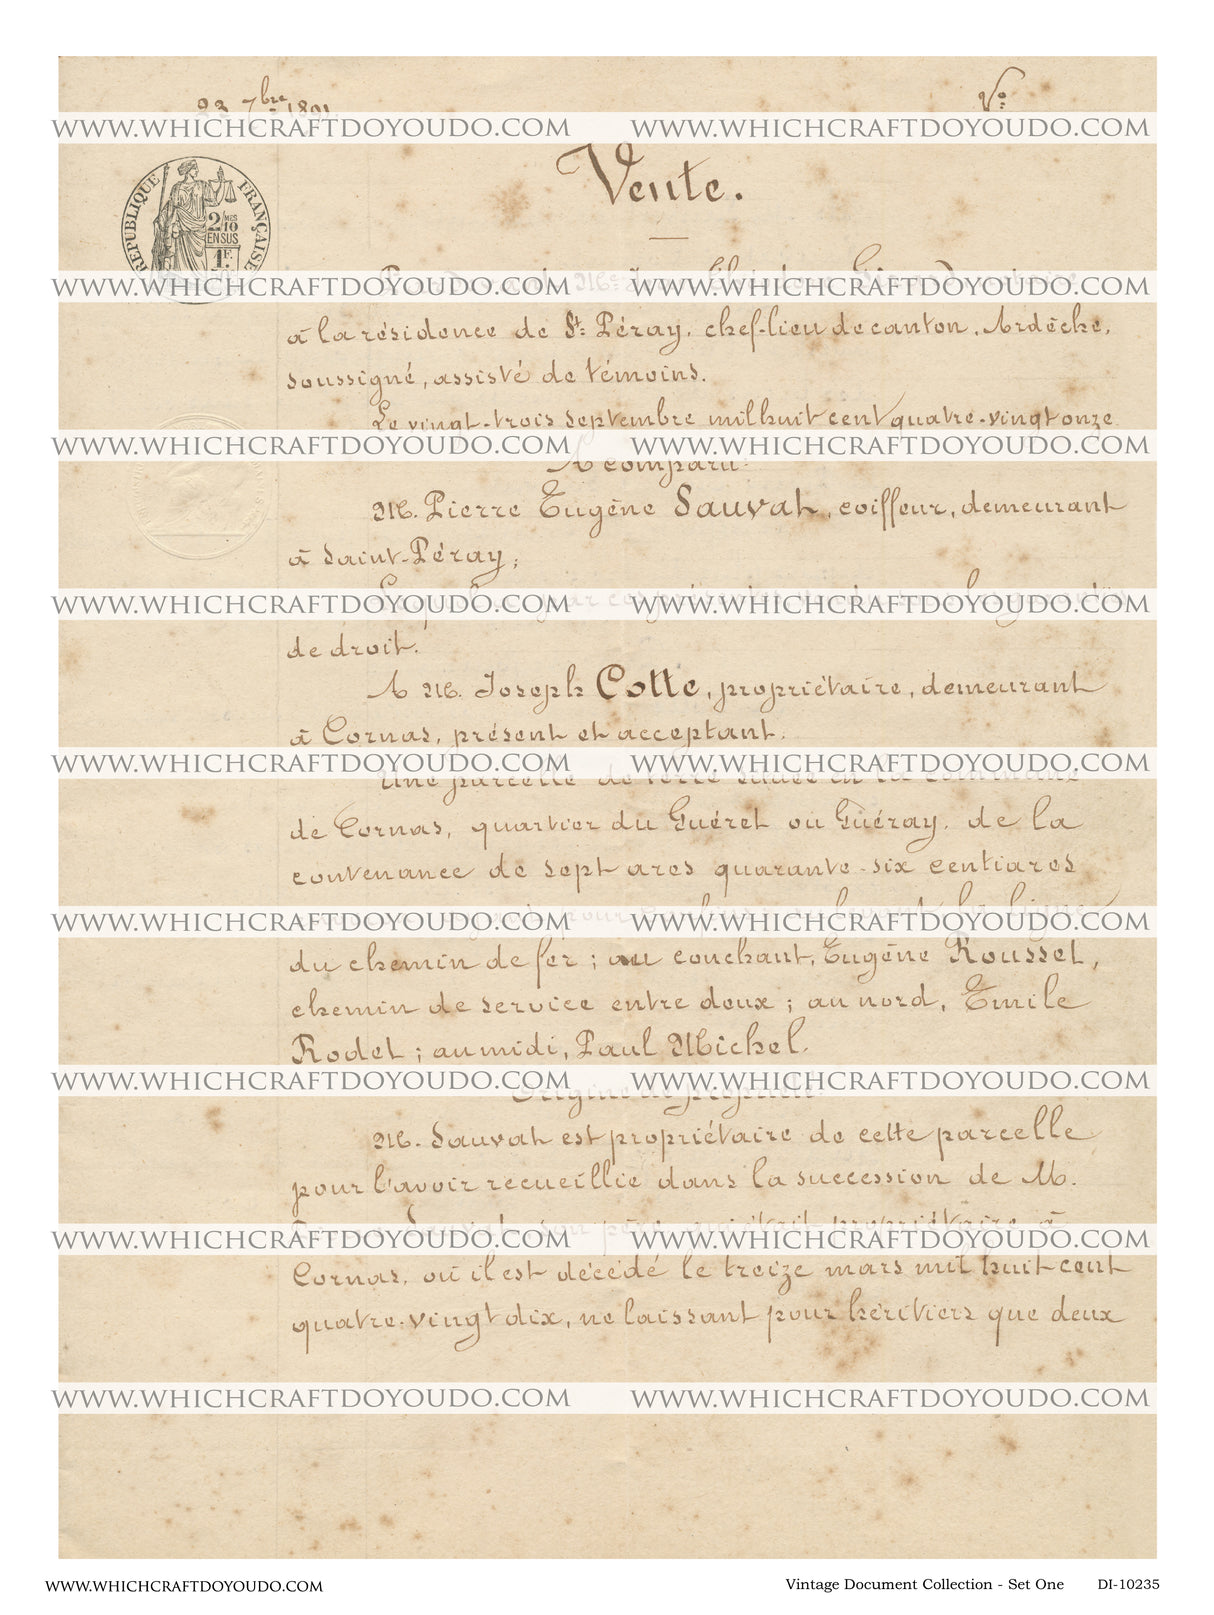 23 7bre 1891.
Vo
WWW.WHICHCRAFTDOYOUDO.COM WWW.WHICHCRAFTDOYOUDO.COM
Vente.
RÉPUBLIQUE FRANÇAISE
2/10 MES
EN SUS
1 F.
Me Jean Théodore Girard notaire
WWW.WHICHCRAFTDOYOUDO.COM WWW.WHICHCRAFTDOYOUDO.COM
à la résidence de St. Péray, chef-lieu de canton, Ardèche,
soussigné, assisté de témoins.
Le vingt-trois septembre mil huit cent quatre-vingt onze
WWW.WHICHCRAFTDOYOUDO.COM WWW.WHICHCRAFTDOYOUDO.COM
A comparu:
M. Pierre Eugène Sauvat, coiffeur, demeurant
à Saint-Péray;
Lequel a par ces présentes vendu sous les garanties
WWW.WHICHCRAFTDOYOUDO.COM WWW.WHICHCRAFTDOYOUDO.COM
de droit.
A M. Joseph Cotte, propriétaire, demeurant
à Cornas, présent et acceptant;
WWW.WHICHCRAFTDOYOUDO.COM WWW.WHICHCRAFTDOYOUDO.COM
Une parcelle de terre située en la commune
de Cornas, quartier du Guéret ou Guéray, de la
contenance de sept ares quarante-six centiares
ayant pour confins: au levant, la ligne
WWW.WHICHCRAFTDOYOUDO.COM WWW.WHICHCRAFTDOYOUDO.COM
du chemin de fer; au couchant, Eugène Rousset,
chemin de service entre deux; au nord, Emile
Rodet; au midi, Paul Michel.
WWW.WHICHCRAFTDOYOUDO.COM WWW.WHICHCRAFTDOYOUDO.COM
Origine de propriété
M. Sauvat est propriétaire de cette parcelle
pour l'avoir recueillie dans la succession de M.
Sauvat, son père, qui était propriétaire à
WWW.WHICHCRAFTDOYOUDO.COM WWW.WHICHCRAFTDOYOUDO.COM
Cornas, où il est décédé le treize mars mil huit cent
quatre-vingt dix, ne laissant pour héritiers que deux
WWW.WHICHCRAFTDOYOUDO.COM WWW.WHICHCRAFTDOYOUDO.COM
WWW.WHICHCRAFTDOYOUDO.COM Vintage Document Collection - Set One DI-10235